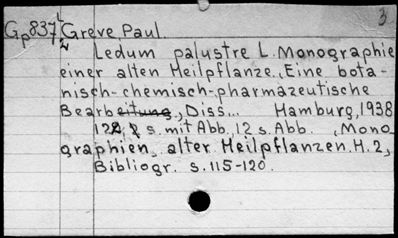 3
Gp837 Greve Paul
Ledum palustre L. Monographie
einer alten Heilpflanze. Eine bota-
nisch-chemisch-pharmazeutische
Bearbeitung., Diss... Hamburg, 1938
122, 2 s. mit Abb, 12 s. Abb. „Mono
graphien alter Heilpflanzen. H. 2„
Bibliogr. s. 115-120.